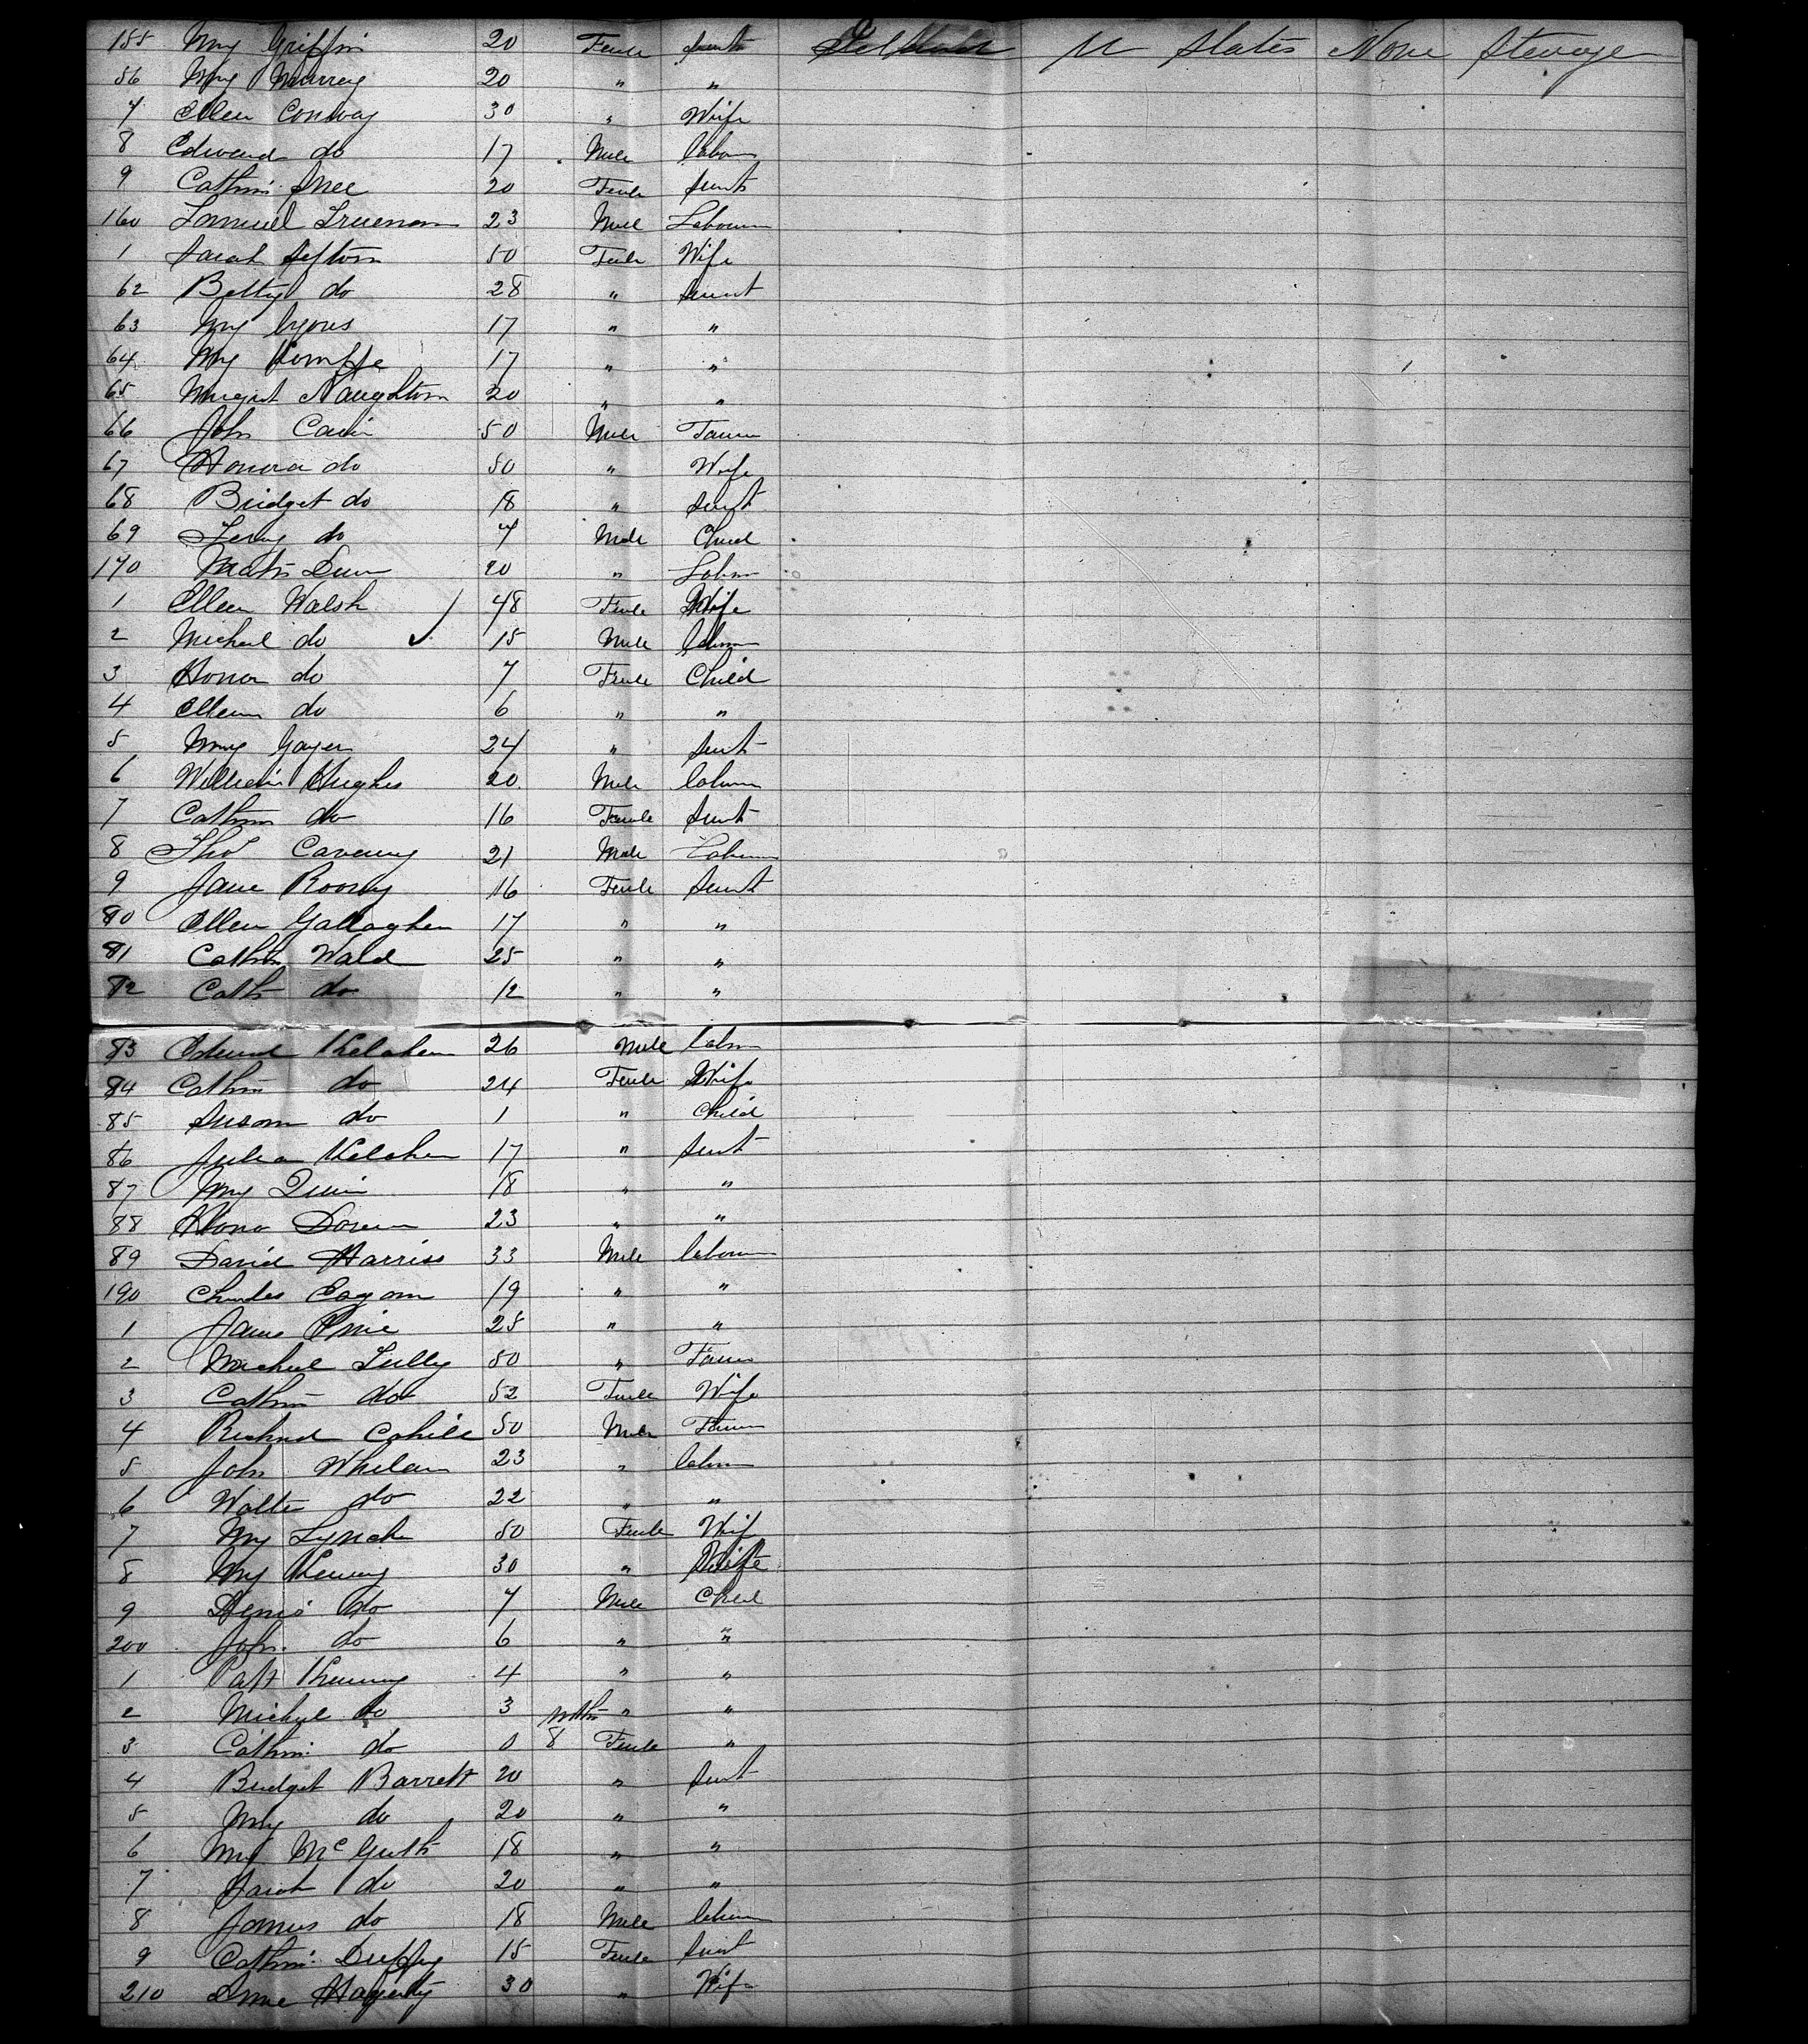 155 My Griffin 20 Feule Sevnt U States None Steerage
56 My Murrey 20 " "
7 Ellen Conway 30 " Wife
8 Edward do 17 Male labour
9 Cathrin 20 Feule Sevnt
160 Samuel Trueman 23 Male Labourer
1 Sarah Sefton 50 Feule Wife
62 Betty do 28 " Servnt
63 My Lyons 17 " "
64 My 17 " "
65 Margrit Naughton 20 " "
66 John Cavin 50 Male Farmr
67 Honora do 50 " Wife
68 Bridget do 18 " Sevnt
69 do 7 Male Child
170 Dunn 20 " Labour
1 Ellen Walsh 48 Feule Wife
2 Micheal do 15 Male labour
3 Honor do 7 Feule Child
4 Ellen do 6 " "
5 My 24 " Sevnt
6 William Hughes 20 Male labour
7 Cathrin do 16 Feule Sevnt
8 Thos 21 Male Labour
9 Jane Roony 16 Feule Sevnt
80 Ellen Gallagher 17 " "
81 Cathrin Wald 25 " "
82 Cath do 12 " "
83 Edward Kelaher 26 Male labour
84 Cathrin do 24 Feule Wife
85 Susan do 1 " Child
86 Julia Kelaher 17 " Sevnt
87 My Quin 18 " "
88 Hono Doren 23 " "
89 David Harriss 33 Male labour
190 Charles Eagan 19 " "
1 James 25 " "
2 Micheal Tully 50 " Farmr
3 Cathrin do 52 Feule Wife
4 Richard Cahill 50 Male Farmr
5 John Whelan 23 " labour
6 Walter do 22 " "
7 My Lynch 50 Feule Wife
8 My Kenny 30 " Wife
9 Denis do 7 Male Child
200 John do 6 " "
1 Patt Kenny 4 " "
2 Micheal do 3 mths " "
3 Cathrin do 0 8 Feule "
4 Bridget Barrett 20 " Sevnt
5 My do 20 " "
6 My Mc Grath 18 " "
7 Sarah do 20 " "
8 James do 18 Male labour
9 Cathrin Duffy 15 Feule Sevnt
210 Anne Hagerty 30 " Wife